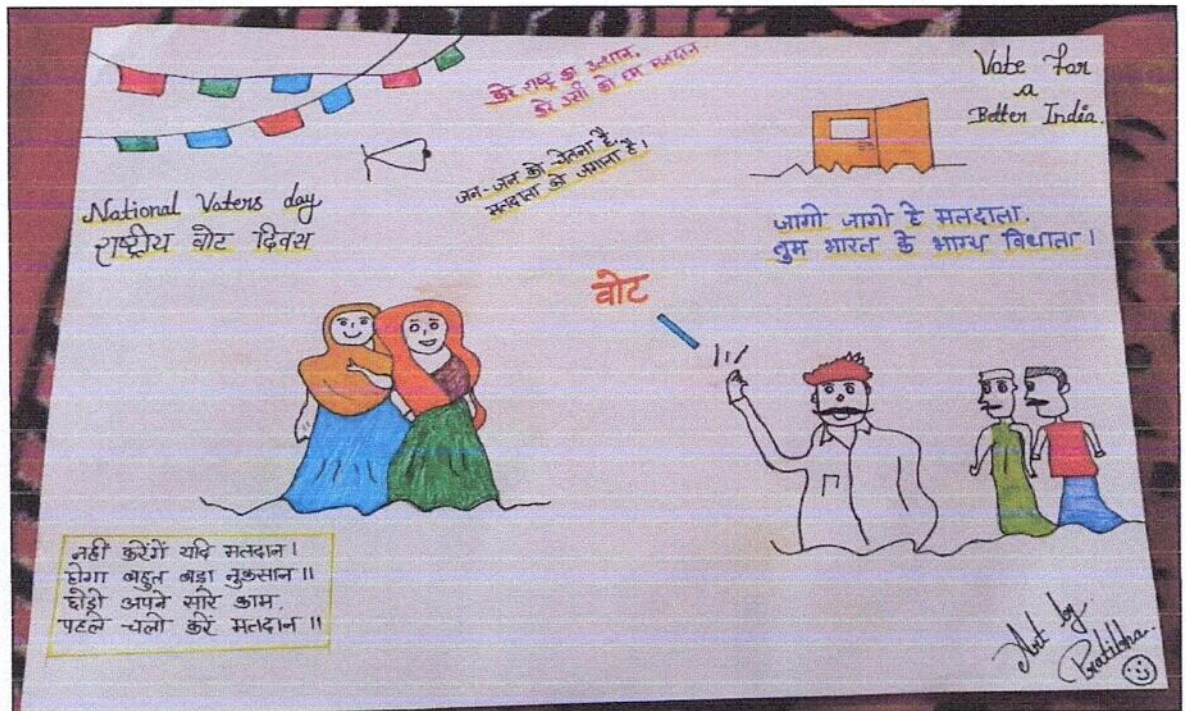 करे राष्ट्र का उत्थान,
करे उसी को हम मतदान
Vote for
a
Better India.
जन-जन की चेतना है,
मतदाता को जगाना है।
National Voters day
राष्ट्रीय वोट दिवस
जागो जागो हे मतदाता,
तुम भारत के भाग्य विधाता।
वोट
नही करेगें यदि मतदान।
होगा बहुत बड़ा नुकसान॥
छोड़ो अपने सारे काम,
पहले चलो करें मतदान॥
Art by
Pratibha.